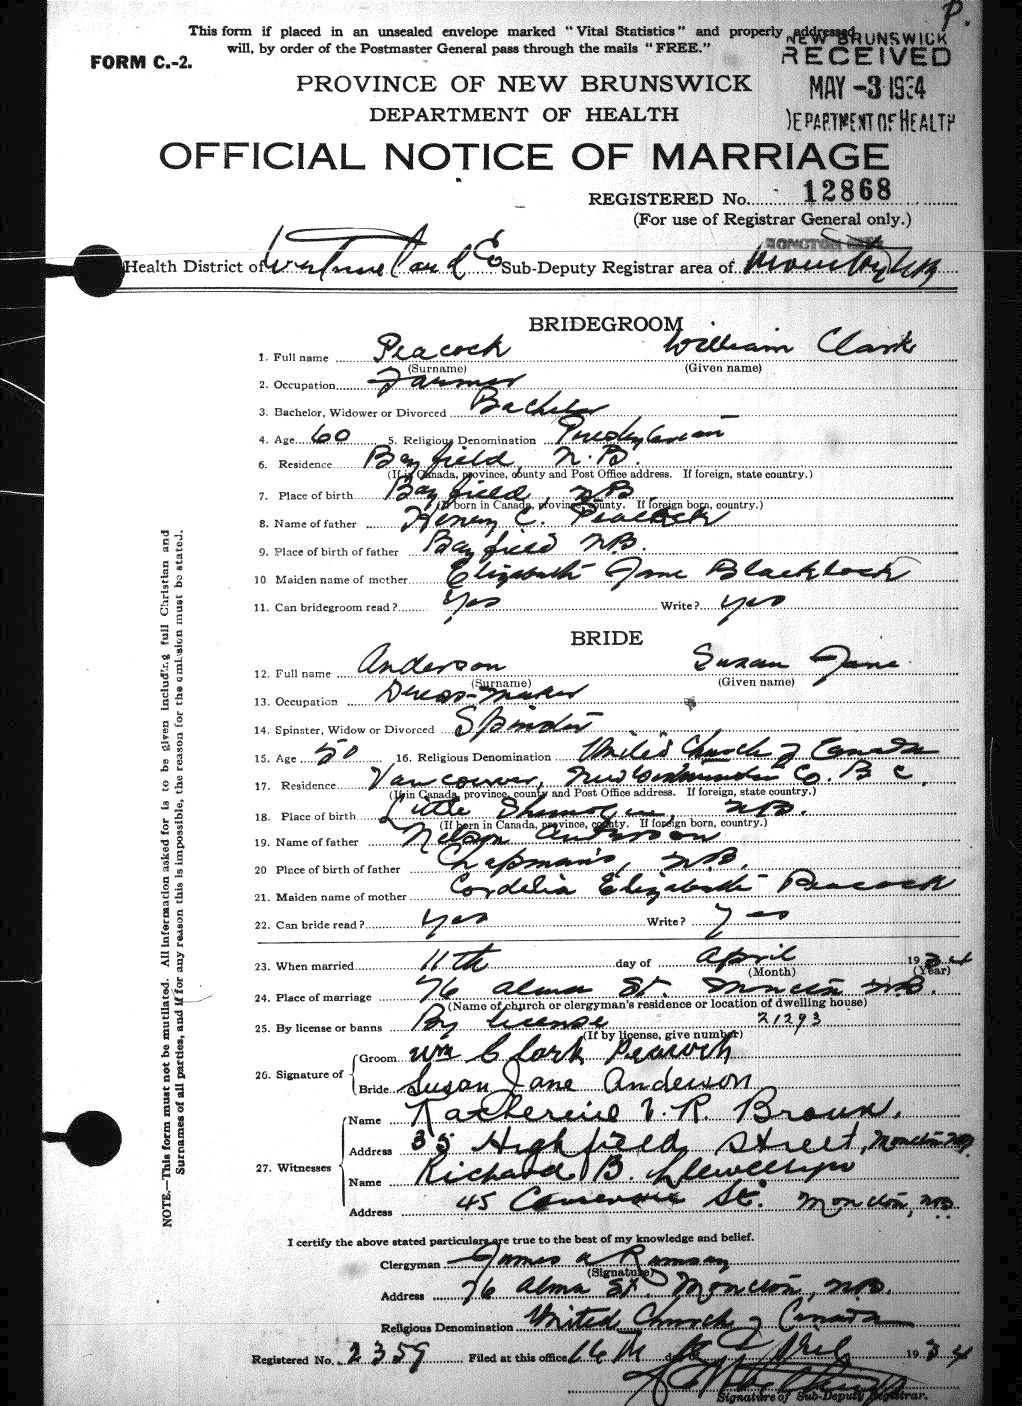 P.
This form if placed in an unsealed envelope marked "Vital Statistics" and properly addressed
will, by order of the Postmaster General pass through the mails "FREE."
FORM C.-2.
NEW BRUNSWICK
RECEIVED
MAY -3 1934
DEPARTMENT OF HEALTH
PROVINCE OF NEW BRUNSWICK
DEPARTMENT OF HEALTH
OFFICIAL NOTICE OF MARRIAGE
REGISTERED No. 12868
(For use of Registrar General only.)
MONCTON
Health District of Westmorland Co Sub-Deputy Registrar area of Moncton NB
BRIDEGROOM
1. Full name Peacock William Clark
(Surname) (Given name)
2. Occupation Farmer
3. Bachelor, Widower or Divorced Bachelor
4. Age 60 5. Religious Denomination Presbyterian
6. Residence Bayfield, N.B.
(If in Canada, province, county and Post Office address. If foreign, state country.)
7. Place of birth Bayfield, NB
(If born in Canada, province, county. If foreign born, country.)
8. Name of father Henry C. Peacock
9. Place of birth of father Bayfield N.B.
10 Maiden name of mother Elizabeth Jane Blacklock
11. Can bridegroom read? Yes Write? Yes
BRIDE
12. Full name Anderson Susan Jane
(Surname) (Given name)
13. Occupation Dress-maker
14. Spinster, Widow or Divorced Spinster
15. Age 50 16. Religious Denomination United Church of Canada
17. Residence Vancouver, New Westminster Co. B C.
(If in Canada, province, county and Post Office address. If foreign, state country.)
18. Place of birth Little Shemogue, NB.
(If born in Canada, province, county. If foreign born, country.)
19. Name of father Nelson Anderson
20 Place of birth of father Chapman's, NB.
21. Maiden name of mother Cordelia Elizabeth Peacock
22. Can bride read? Yes Write? Yes
23. When married 11th day of April 1934
(Month) (Year)
24. Place of marriage 76 Alma St. Moncton NB.
(Name of church or clergyman's residence or location of dwelling house)
25. By license or banns By license 21293
(If by license, give number)
26. Signature of Groom Wm Clark Peacock
Bride Susan Jane Anderson
27. Witnesses Name Katherine V. R. Brown.
Address 35 Highfield Street, Moncton NB.
Name Richard B. Llewellyn
Address 45 St. Moncton, NB.
I certify the above stated particulars are true to the best of my knowledge and belief.
Clergyman James A Ramsay
(Signature)
Address 76 Alma St. Moncton, NB.
Religious Denomination United Church of Canada
Registered No. 2359 Filed at this office 16th day of April 1934
Signature of Sub-Deputy Registrar.
NOTE.—This form must not be mutilated. All information asked for is to be given including full Christian and
Surnames of all parties, and if for any reason this is impossible, the reason for the omission must be stated.